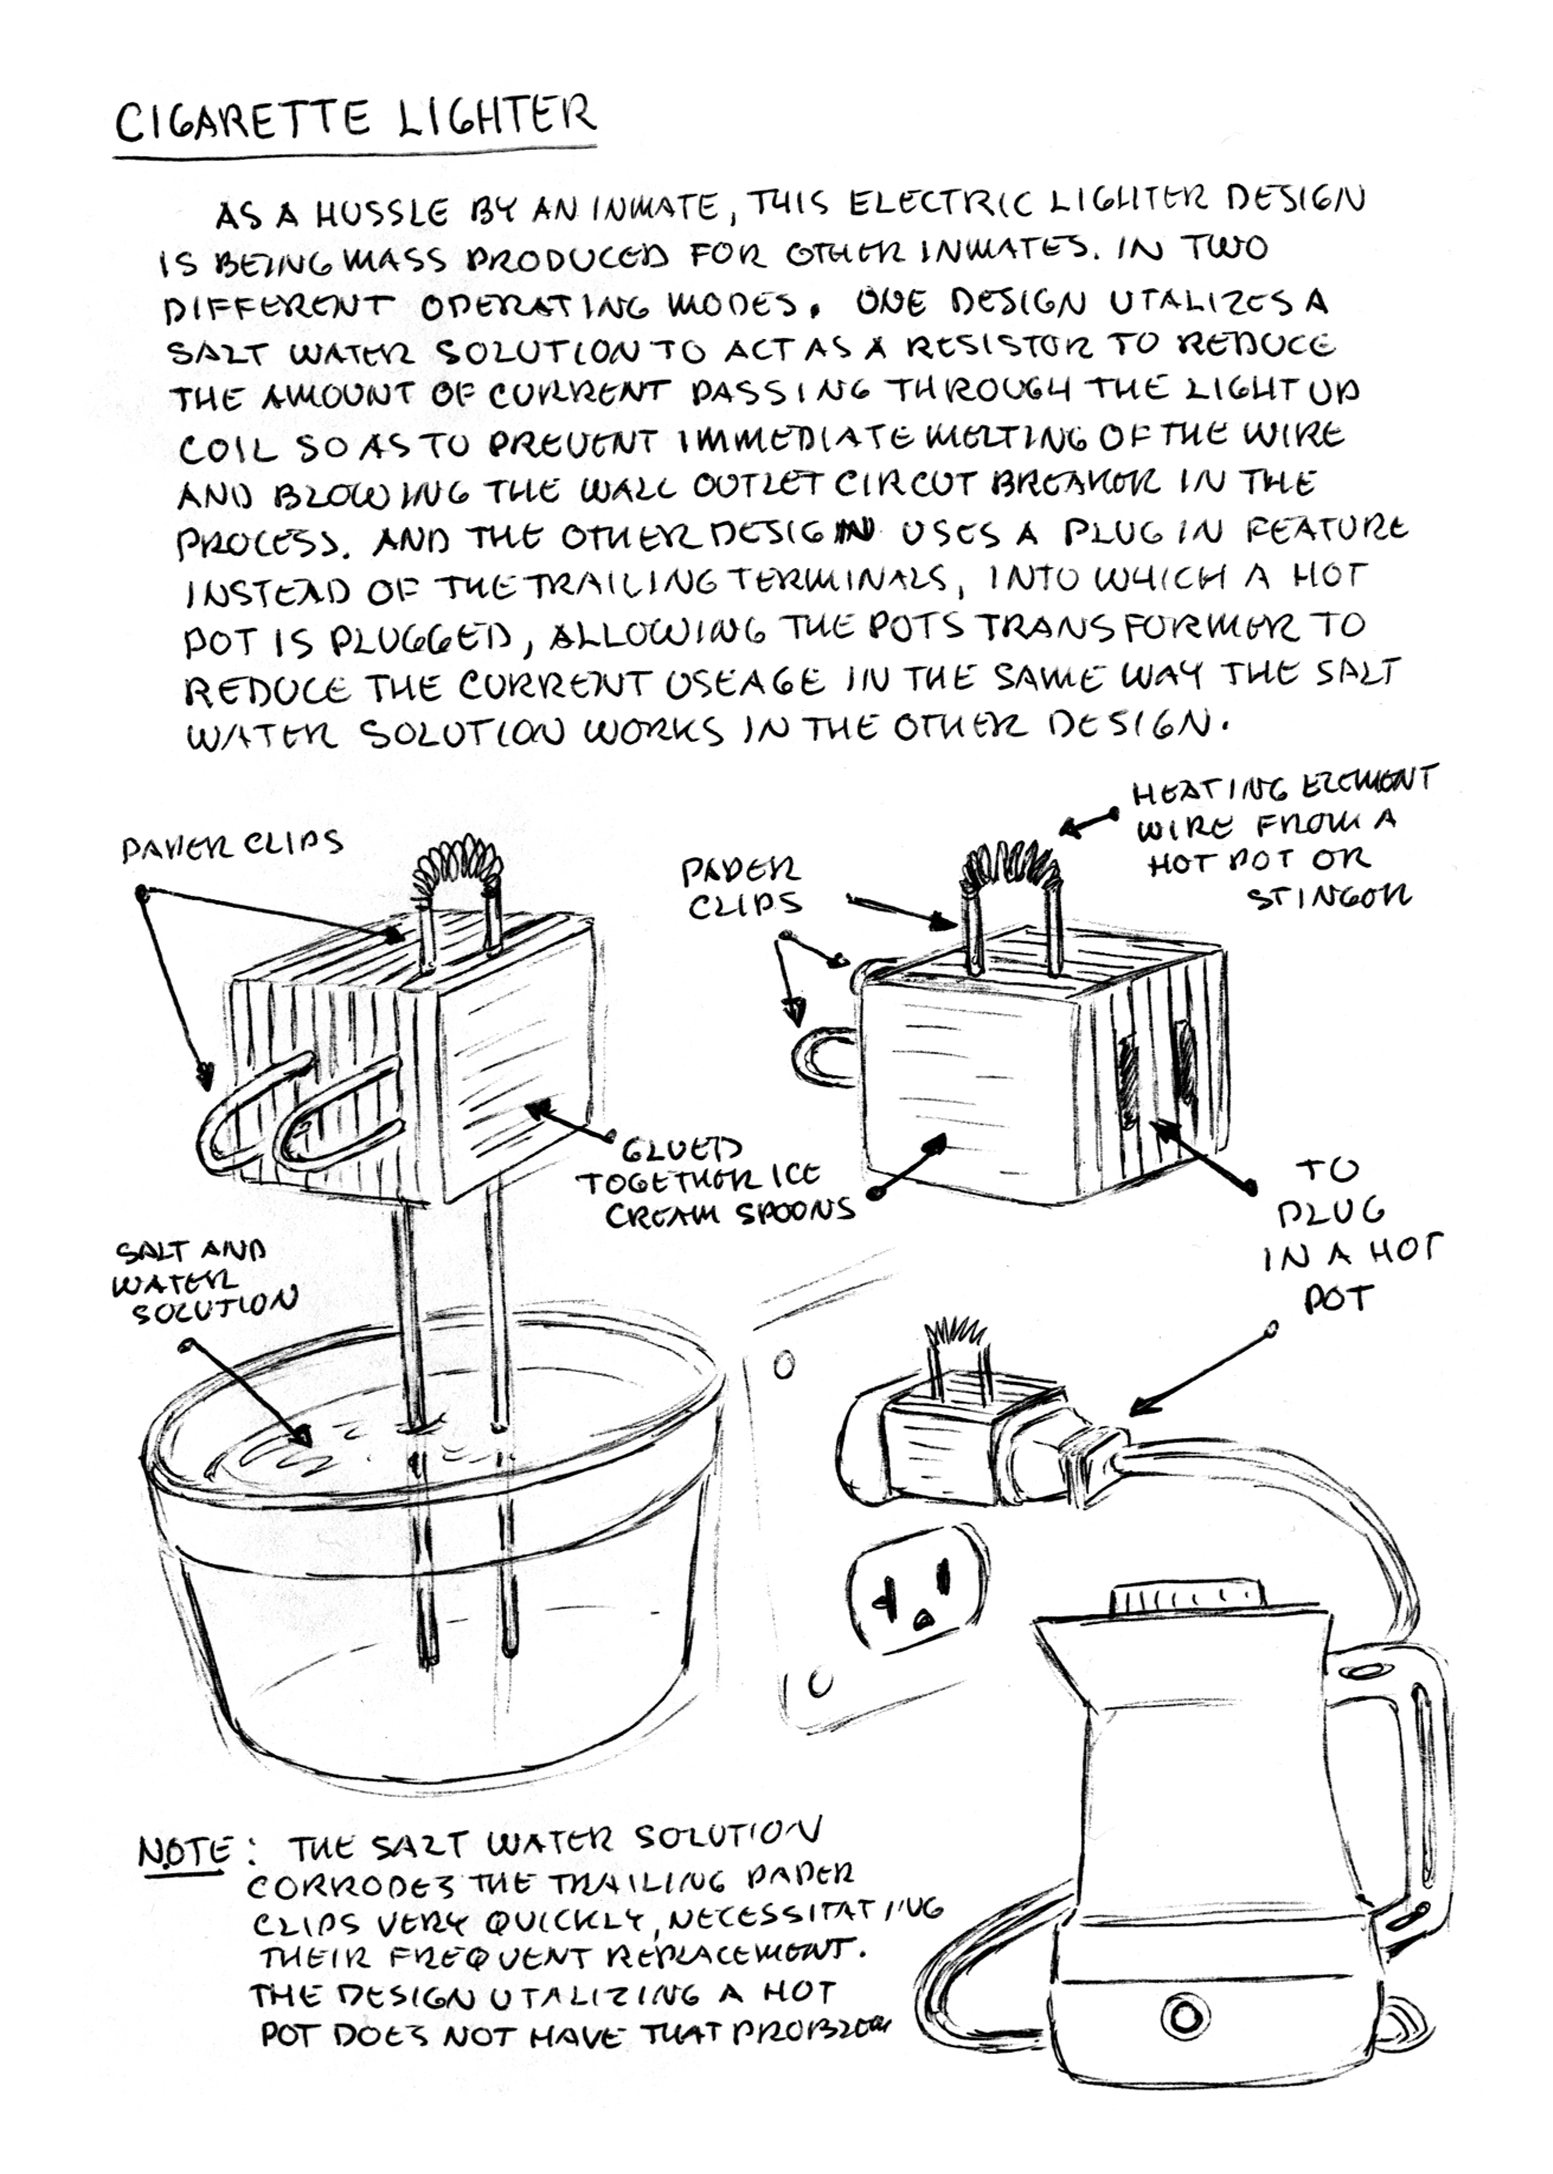 CIGARETTE LIGHTER
AS A HUSSLE BY AN INMATE, THIS ELECTRIC LIGHTER DESIGN
IS BEING MASS PRODUCED FOR OTHER INMATES. IN TWO
DIFFERENT OPERATING MODES. ONE DESIGN UTALIZES A
SALT WATER SOLUTION TO ACT AS A RESISTOR TO REDUCE
THE AMOUNT OF CURRENT PASSING THROUGH THE LIGHT UP
COIL SO AS TO PREVENT IMMEDIATE MELTING OF THE WIRE
AND BLOWING THE WALL OUTLET CIRCUT BREAKER IN THE
PROCESS. AND THE OTHER DESIGN USES A PLUG IN FEATURE
INSTEAD OF THE TRAILING TERMINALS, INTO WHICH A HOT
POT IS PLUGGED, ALLOWING THE POTS TRANSFORMER TO
REDUCE THE CURRENT USEAGE IN THE SAME WAY THE SALT
WATER SOLUTION WORKS IN THE OTHER DESIGN.
PAPER CLIPS
PAPER
CLIPS
HEATING ELEMENT
WIRE FROM A
HOT POT OR
STINGOR
GLUED
TOGETHER ICE
CREAM SPOONS
TO
PLUG
IN A HOT
POT
SALT AND
WATER
SOLUTION
NOTE: THE SALT WATER SOLUTION
CORRODES THE TRAILING PAPER
CLIPS VERY QUICKLY, NECESSITATING
THEIR FREQUENT REPLACEMENT.
THE DESIGN UTALIZING A HOT
POT DOES NOT HAVE THAT PROBLEM